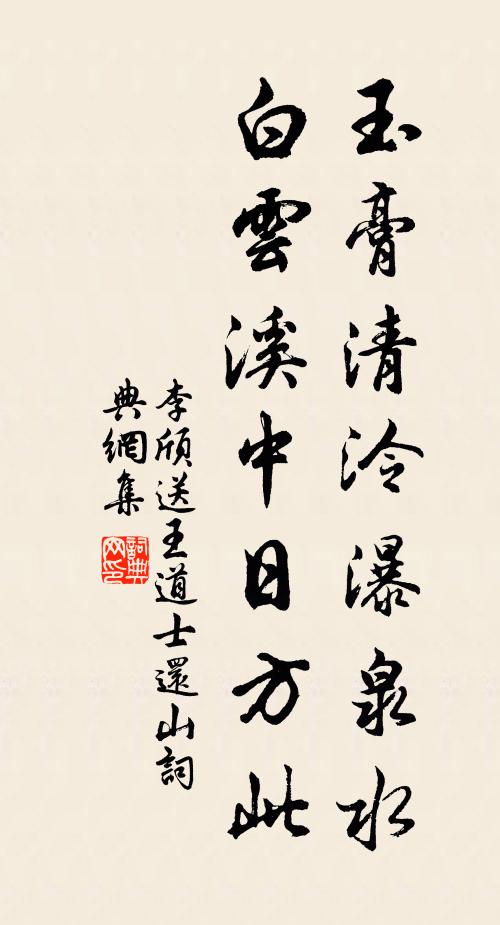 玉膏清泠瀑泉水
白雲溪中日方此
李頎送王道士還山詞
典網集
詞典網印